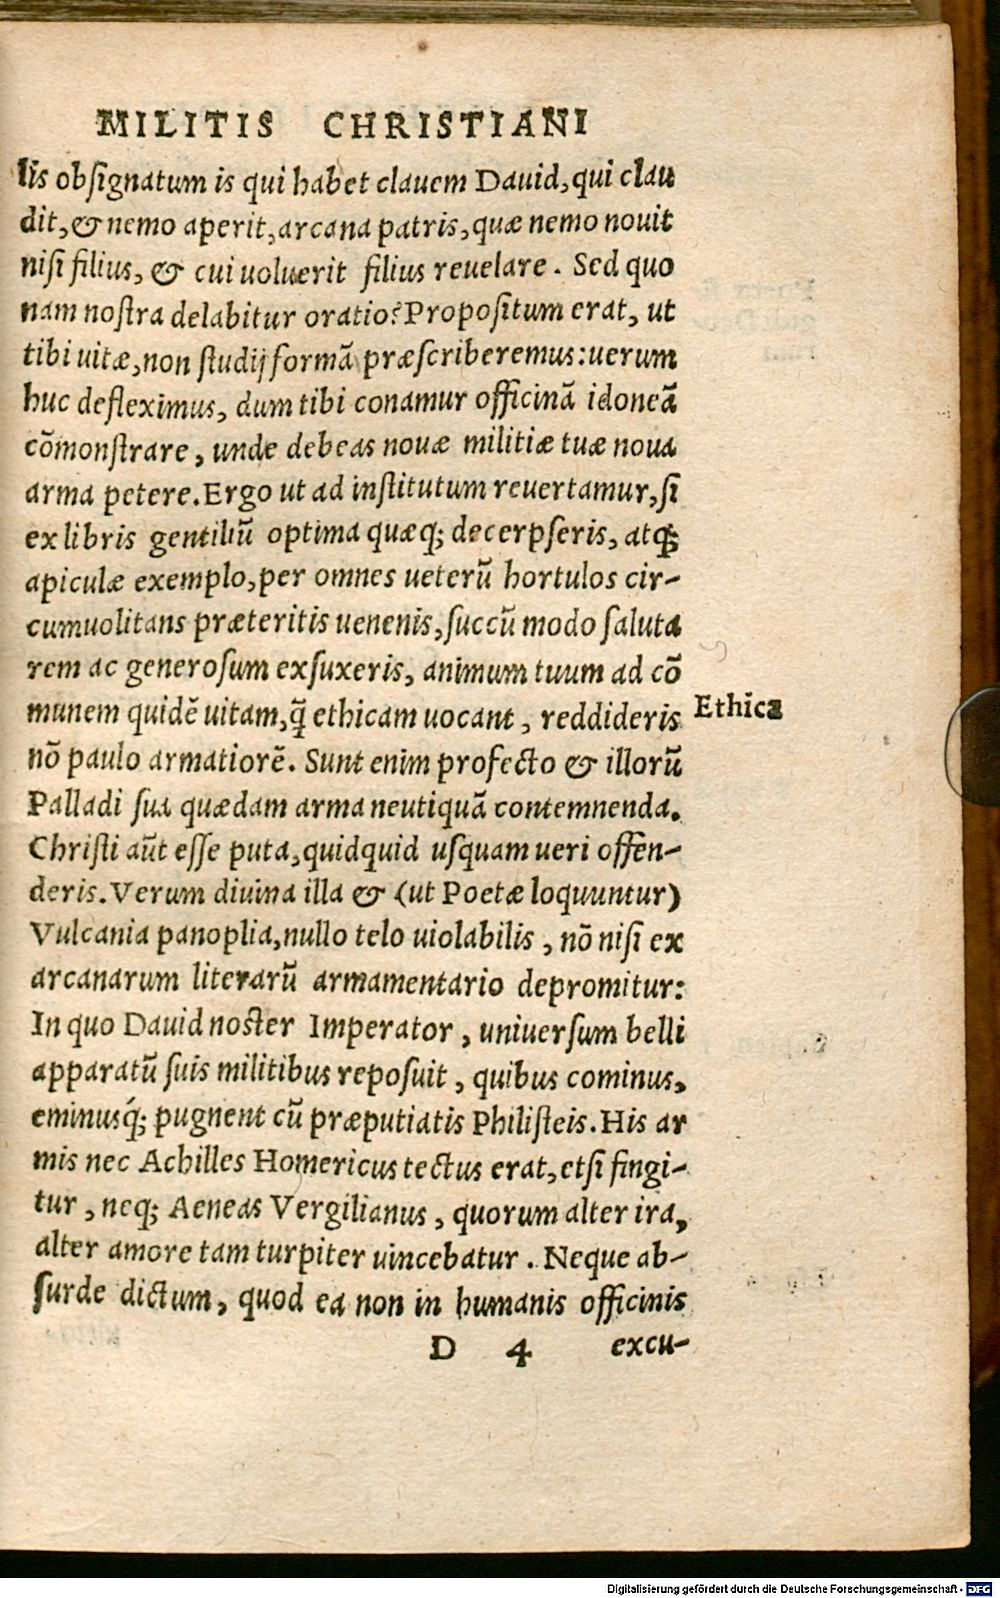 MILITIS CHRISTIANI
lis obsignatum is qui habet clauem Dauid, qui clau
dit, & nemo aperit, arcana patris, quæ nemo nouit
nisi filius, & cui uoluerit filius reuelare. Sed quo
nam nostra delabitur oratio? Propositum erat, ut
tibi uitæ, non studij formã præscriberemus: uerum
huc defleximus, dum tibi conamur officinã idoneã
cõmonstrare, unde debeas nouæ militiæ tuæ noua
arma petere. Ergo ut ad institutum reuertamur, si
ex libris gentiliũ optima quæq; decerpseris, atq;
apiculæ exemplo, per omnes ueterũ hortulos cir-
cumuolitans præteritis uenenis, succũ modo saluta
rem ac generosum exsuxeris, animum tuum ad cõ
munem quidẽ uitam, q̃ ethicam uocant, reddideris
Ethica
nõ paulo armatiorẽ. Sunt enim profecto & illorũ
Palladi sua quædam arma neutiquã contemnenda.
Christi aũt esse puta, quidquid usquam ueri offen-
deris. Verum diuina illa & (ut Poetæ loquuntur)
Vulcania panoplia, nullo telo uiolabilis, nõ nisi ex
arcanarum literarũ armamentario depromitur:
In quo Dauid noster Imperator, uniuersum belli
apparatũ suis militibus reposuit, quibus cominus,
eminusq́; pugnent cũ præputiatis Philisteis. His ar
mis nec Achilles Homericus tectus erat, etsi fingi-
tur, neq; Aeneas Vergilianus, quorum alter ira,
alter amore tam turpiter uincebatur. Neque ab-
surde dictum, quod ea non in humanis officinis
D 4 excu-
Digitalisierung gefördert durch die Deutsche Forschungsgemeinschaft - DFG